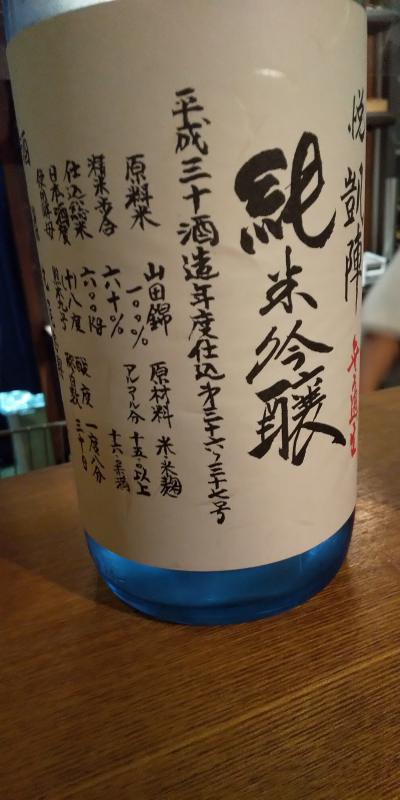 悦凱陣
純米吟醸
平成三十酒造年度仕込 第三十六、三十七号
原料米 山田錦 一〇〇% 原材料 米・米麹
精米歩合 六十% アルコール分 十五.〇以上 十六.〇未満
仕込総米 六〇〇kg
日本酒度 (+)八度 酸度 一度八分
使用酵母 熊本九号